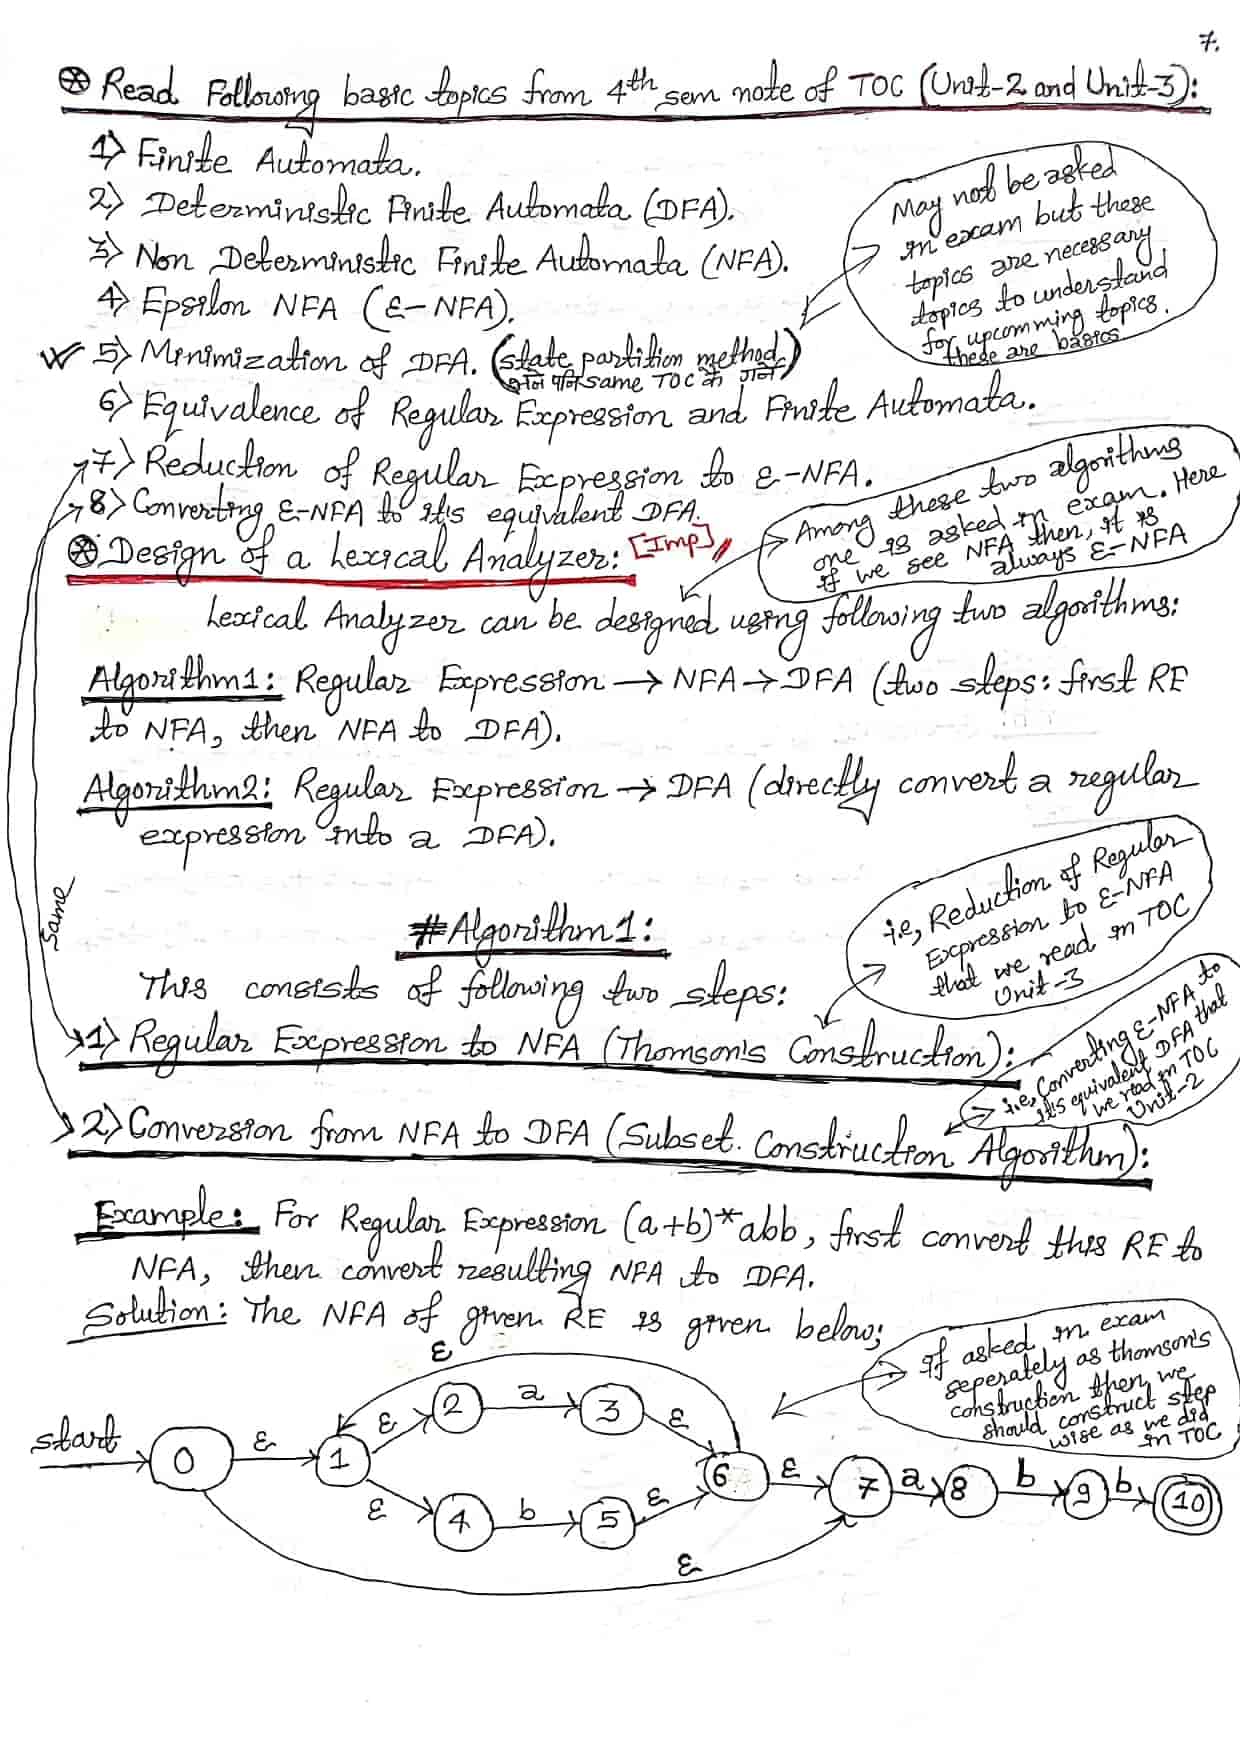 7.
Read Following basic topics from 4th sem note of TOC (Unit-2 and Unit-3):
1) Finite Automata.
2) Deterministic Finite Automata (DFA).
3) Non Deterministic Finite Automata (NFA).
4) Epsilon NFA (ε-NFA).
5) Minimization of DFA. (state partition method)
same TOC कै
May not be asked
in exam but these
topics are necessary
topics to understand
for upcomming topics.
these are basics
6) Equivalence of Regular Expression and Finite Automata.
7) Reduction of Regular Expression to ε-NFA.
8) Converting ε-NFA to it's equivalent DFA.
Design of a Lexical Analyzer: [Imp]
Among these two algorithms
one is asked in exam. Here
if we see NFA then, it is
always ε-NFA
Lexical Analyzer can be designed using following two algorithms:
Algorithm1: Regular Expression → NFA → DFA (two steps: first RE
to NFA, then NFA to DFA).
Algorithm2: Regular Expression → DFA (directly convert a regular
expression into a DFA).
Same
#Algorithm1:
i.e, Reduction of Regular
Expression to ε-NFA
that we read in TOC
Unit-3
This consists of following two steps:
1) Regular Expression to NFA (Thomson's Construction):
i.e, Converting ε-NFA to
it's equivalent DFA that
we read in TOC
Unit-2
2) Conversion from NFA to DFA (Subset. Construction Algorithm):
Example: For Regular Expression (a+b)*abb, first convert this RE to
NFA, then convert resulting NFA to DFA.
Solution: The NFA of given RE is given below;
If asked in exam
seperately as thomson's
construction then, we
should construct step
wise as we did
in TOC
ε
2 a 3
start 0 ε 1 ε ε 6 ε 7 a 8 b 9 b 10
ε 4 b 5 ε
ε